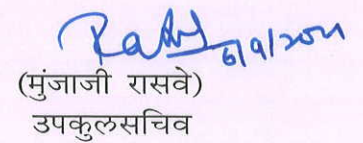 6/9/2021
(मुंजाजी रासवे)
उपकुलसचिव